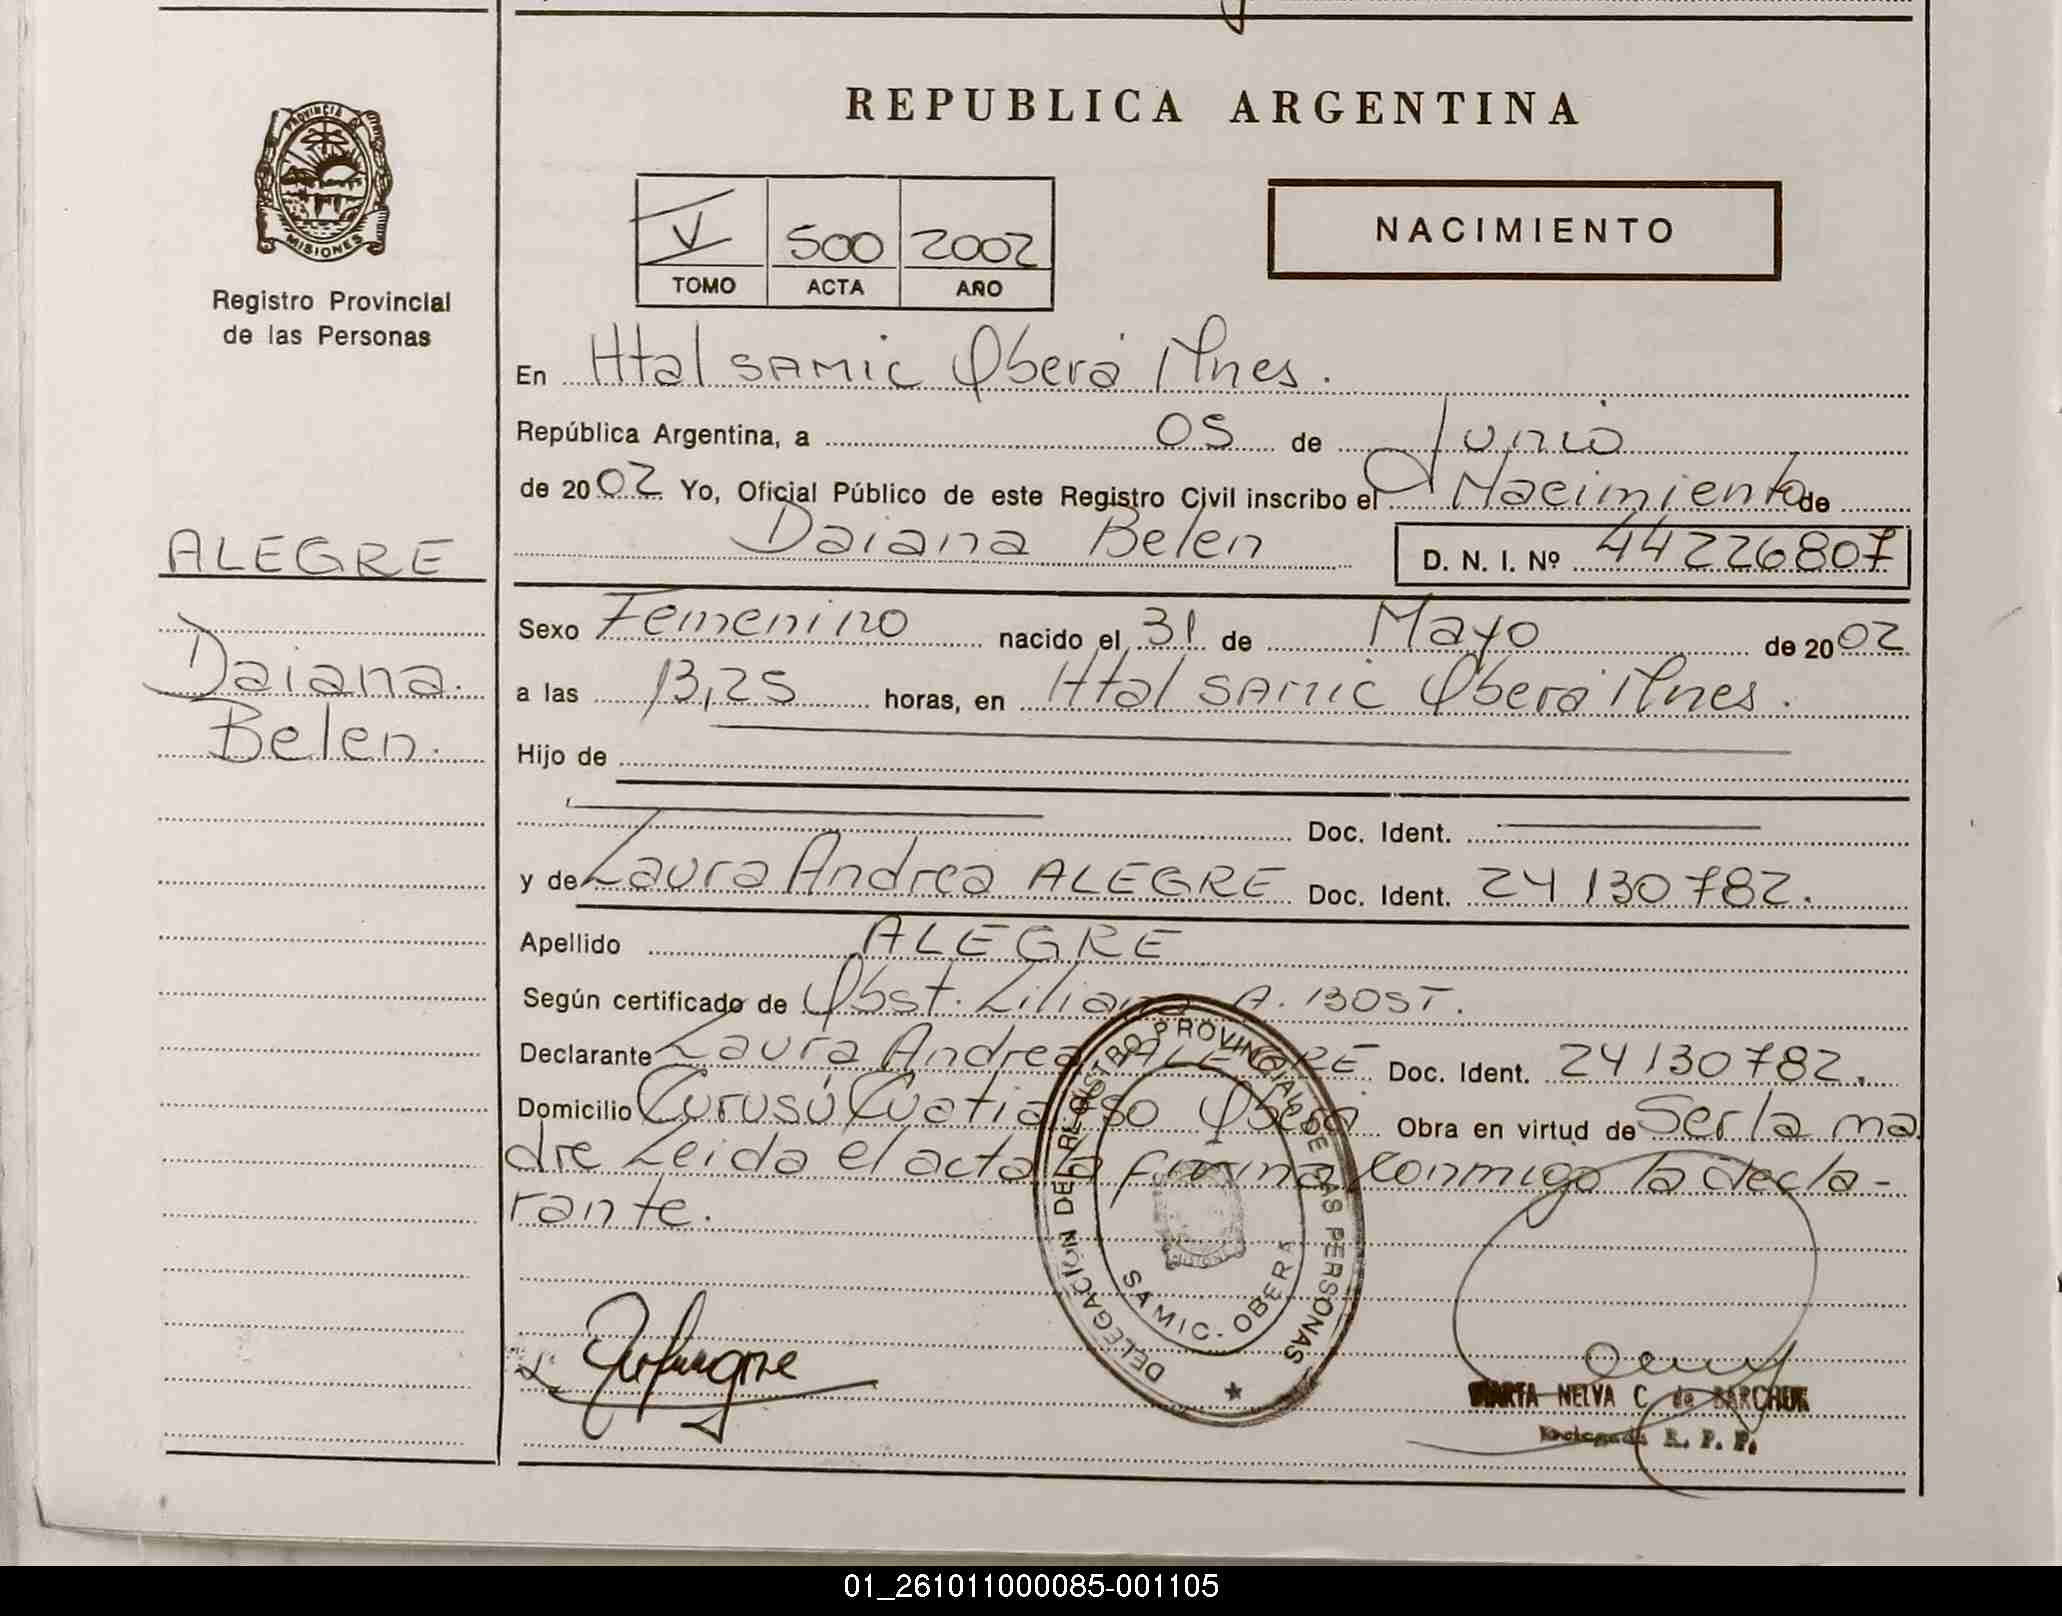 REPUBLICA ARGENTINA
PROVINCIA DE
MISIONES
Registro Provincial
de las Personas
V 500 2002
TOMO ACTA AÑO
NACIMIENTO
En Htal SAMIC Oberá Mnes.
República Argentina, a 05 de Junio
de 2002 Yo, Oficial Público de este Registro Civil inscribo el Nacimiento de
Daiana Belen D. N. I. Nº 44226807
ALEGRE
Daiana
Belen.
Sexo Femenino nacido el 31 de Mayo de 2002
a las 13,25 horas, en Htal SAMIC Oberá Mnes.
Hijo de
Doc. Ident.
y de Laura Andrea ALEGRE Doc. Ident. 24130782.
Apellido ALEGRE
Según certificado de Obst. Liliana A. BOST.
Declarante Laura Andrea ALEGRE Doc. Ident. 24130782.
Domicilio Curusú Cuatia Oberá Obra en virtud de Ser la ma
dre Leida el acta la firma conmigo la decla-
rante.
DELEGACION DEL REGISTRO PROVINCIAL DE LAS PERSONAS
SAMIC - OBERA
MARTA NELVA C. de BARCHUK
Delegada R. P. P.
01_261011000085-001105